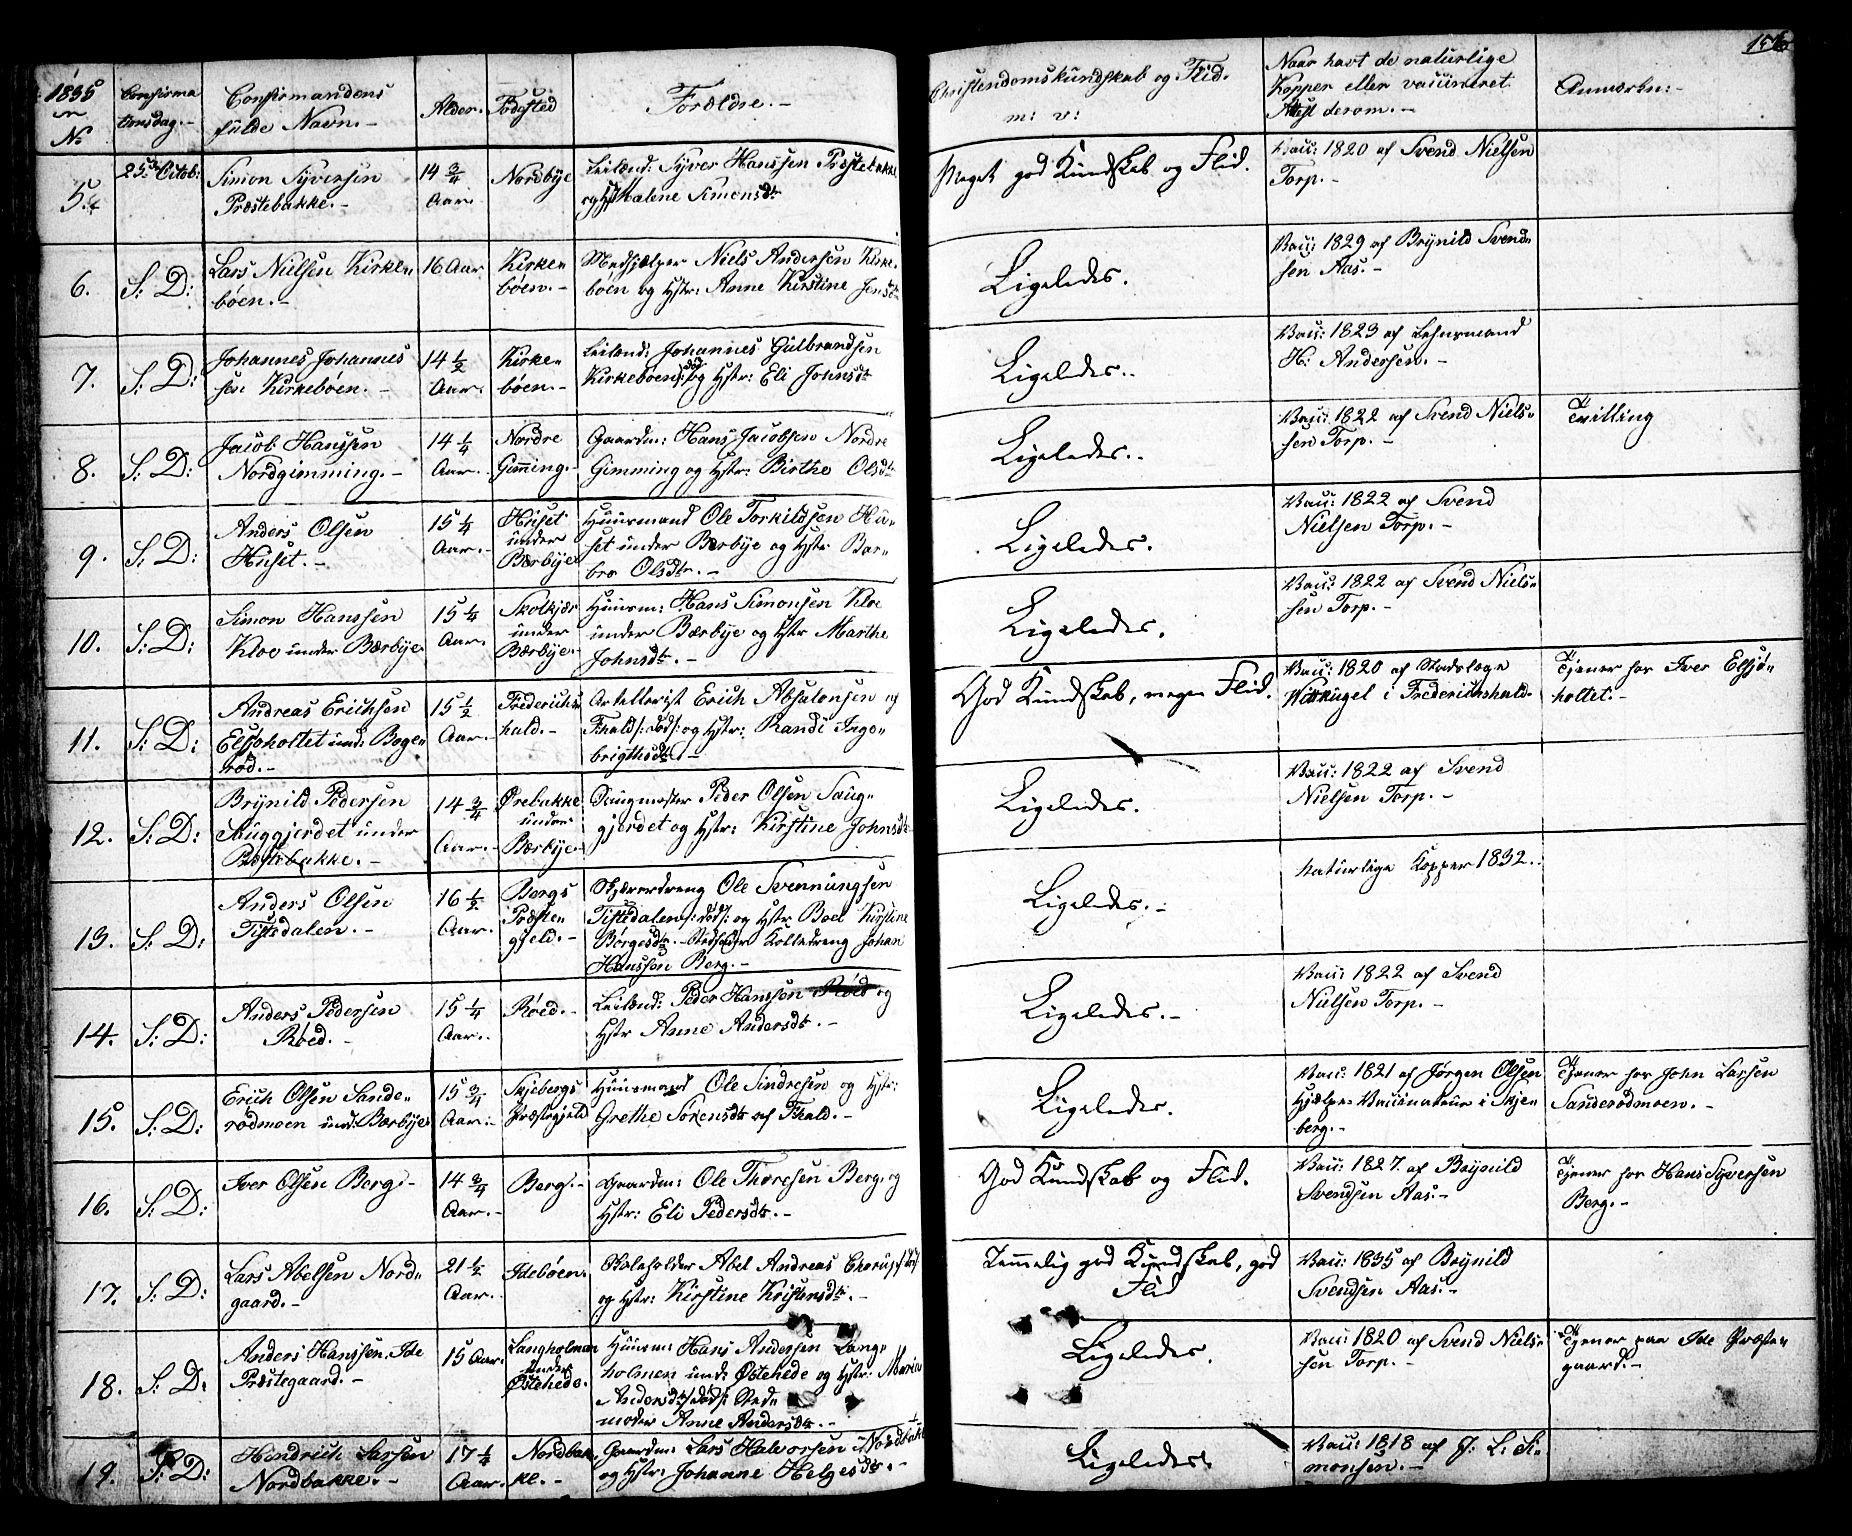 1835
No
Confirma
tionsdag.-
Confirmandens
fulde Navn.-
Alder.
Fødested
Forældre.-
Christendomskundskab og Flid.
m: v:
Naar havt de naturlige
Kopper eller vaccineret
Attest derom.-
Anmærkn:-
5.
25de Octob:
Simon Syversen
Præstebakke.-
14 3/4
Aar.
Nordbye
Leilænd: Syver Hanssen Præstebakke
og Hst Malene Simonsdtr
Meget god Kundskab og Flid.
Vacc: 1820 af Svend Nielsen
Torp.-
6.
S: D:
Lars Nielsen Kirke-
bøen.-
16 Aar
Kirke-
bøen.-
Medhjælper Niels Andersen Kirke-
bøen og Hstr: Anne Kirstine Jensdtr
Ligeledes.
Vacc: 1829 af Brynild Svend-
sen Aas.-
7.
S: D:
Johannes Johannes
sen Kirkebøen.-
14 1/2
Aar.
Kirke-
bøen.-
Leilænd: Johannes Gulbrandsen
Kirkebøen /: død :/ og Hstr: Eli Johnsdtr
Ligeledes.-
Vacc: 1823 af Lehnsmand
H: Andersen.-
8.
S: D:
Jacob Hanssen
Nordgimming.-
14 1/4
Aar.
Nordre
Gimming.-
Gaardm: Hans Jacobsen Nordre
Gimming og Hstr: Birthe Olsdtr
Ligeledes.-
Vacc: 1822 af Svend Niels-
sen Torp.-
Tvilling
9.
S: D:
Anders Olsen
Huset.-
15 1/4
Aar.-
Huset
under
Bærbye
Huusmand Ole Torkildsen Hu-
set under Bærbye og Hstr Bar-
bro Olsdtr.-
Ligeledes.
Vacc: 1822 af Svend
Nielsen Torp.-
10.
S: D:
Simon Hanssen
Kloe under Bærbye
15 1/4
Aar.
Skolkjær
under
Bærbye.-
Huusm: Hans Simonsen Kloe
under Bærbye og Hstr Marthe
Johnsdtr.-
Ligeledes.
Vacc: 1822 af Svend Niels-
sen Torp.-
11.
S: D:
Andreas Erichsen
Elsjøholtet und: Boge-
rød.-
15 1/2
Aar.-
Frederichs
hald.-
Artellerist Erich Absalonsen og
Fhald /: død :/ og Hstr: Randi Inge-
brigthsdtr.-
God Kundskab, megen Flid.
Vacc: 1820 af Stadslæge
Wittkugel i Frederichshald.
Tjener hos Iver Elsjø-
holtet.-
12.
S: D:
Brynild Pedersen
Sauggjerdet under
Præstebakke.-
14 3/4
Aar.-
Ørebakke
under
Bærbye.-
Saugmester Peder Olsen Saug-
gjerdet og Hstr: Kirstine Johnsdtr
Ligeledes.
Vacc: 1822 af Svend
Nielsen Torp.-
13.
S: D:
Anders Olsen
Tistedalen.-
16 1/2
Aar.
Bergs
Præste-
gjeld.-
Skjærerdreng Ole Svenningsen
Tistedalen /: død :/ og Hstr Boel Kirstine
Børgesdtr.- Stedfader Kølledreng Johan
Hanssen Berg.-
Ligeledes.-
naturlige Kopper 1832.
14.
S: D:
Anders Pedersen
Røed.-
15 1/4
Aar.
Røed.-
Leilænd: Peder Hanssen Røed og
Hstr Anne Andersdtr.-
Ligeledes.-
Vacc: 1822 af Svend
Nielsen Torp.-
15.
S: D:
Erich Olsen Sande-
rødmoen und: Bærbye
15 3/4
Aar.-
Skjebergs
Præstegjeld
Huusmand Ole Sindresen og Hstr:
Grethe Sørensdtr af Fhald.-
Ligeledes.
Vacc: 1821 af Jørgen Olsen
Hjælpe Vaccinateur i Skje-
berg.-
Tjener hos John Larsen
Sanderødmoen.-
16.
S: D:
Iver Olsen Berg.-
14 3/4
Aar.-
Berg.-
Gaardm: Ole Thoresen Berg og
Hstr: Eli Pedersdtr.-
God Kundskab og Flid.
Vacc: 1827. af Brynild
Svendsen Aas.-
Tjener hos Hans Syversen
Berg.-
17.
S: D:
Lars Abelsen Nord-
gaard.-
21 1/2
Aar.-
Idebøen.
Abel Andreas
og Hstr: Kirstine Kristensdtr.-
Temmelig god Kundskab, god
Flid
Vacc: 1835 af Brynild
Svendsen Aas.-
18.
S: D:
Anders Hanssen. Ide
Præstegaard.-
15 Aar.
Langholmen
under
Østehede.
Huusm: Hans Andersen Lang-
holmen und: Østehede og Hstr: Maria
Andersdtr /: død :/ Sted-
moder Anne Andersdtr.-
Ligeledes.
Vacc: 1820 af Svend Niels-
sen Torp.-
Tjener paa Ide Præste-
gaard.-
19.
S: D:
Hendrich Larsen
Nordbakke.-
17 1/4
Aar.-
Nordbak-
ke.-
Gaardm: Lars Halvorsen Nordbakke
og Hstr: Johanne Helgesdtr.-
Ligeledes.
Vacc: 1818 af J: L: Si-
monsen.-